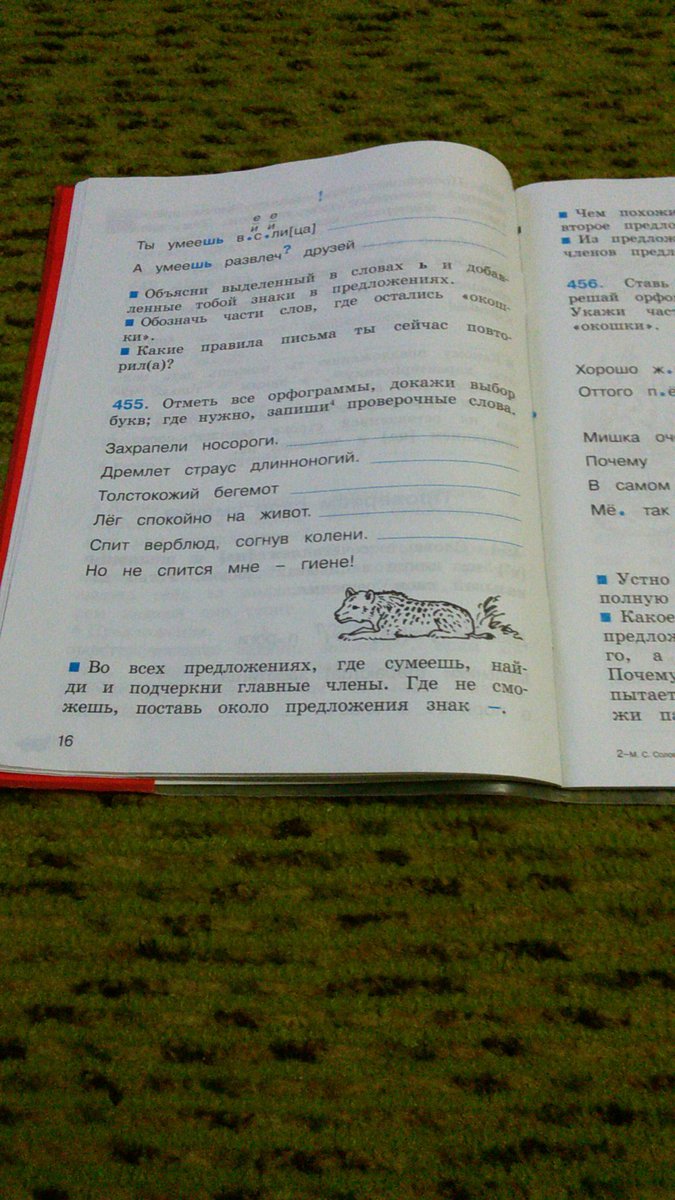 !
е е
и и
Ты умеешь в.с.ли[ца]
А умеешь развлеч? друзей
■ Объясни выделенный в словах ь и добав-
ленные тобой знаки в предложениях.
■ Обозначь части слов, где остались «окош-
ки».
■ Какие правила письма ты сейчас повто-
рил(а)?
455. Отметь все орфограммы, докажи выбор
букв; где нужно, запиши⁴ проверочные слова.
Захрапели носороги.
Дремлет страус длинноногий.
Толстокожий бегемот
Лёг спокойно на живот.
Спит верблюд, согнув колени.
Но не спится мне – гиене!
■ Во всех предложениях, где сумеешь, най-
ди и подчеркни главные члены. Где не смо-
жешь, поставь около предложения знак –.
16
■ Чем похожи
второе предло
■ Из предлож
членов предл
456. Ставь
решай орфо
Укажи час
«окошки».
Хорошо ж.
Оттого п.ё
Мишка оч
Почему
В самом
Мё. так
■ Устно
полную
■ Какое
предлож
го, а
Почему
пытает
жи па
2–М. С. Соло